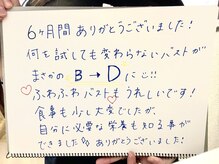 6ヶ月間 ありがとうございました!
何を試しても変わらないバストが
まさかの B → D に!!
ふわふわバストもうれしいです!
食事も少し大変でしたが、
自分に必要な栄養も知る事が
できました ありがとうございました!